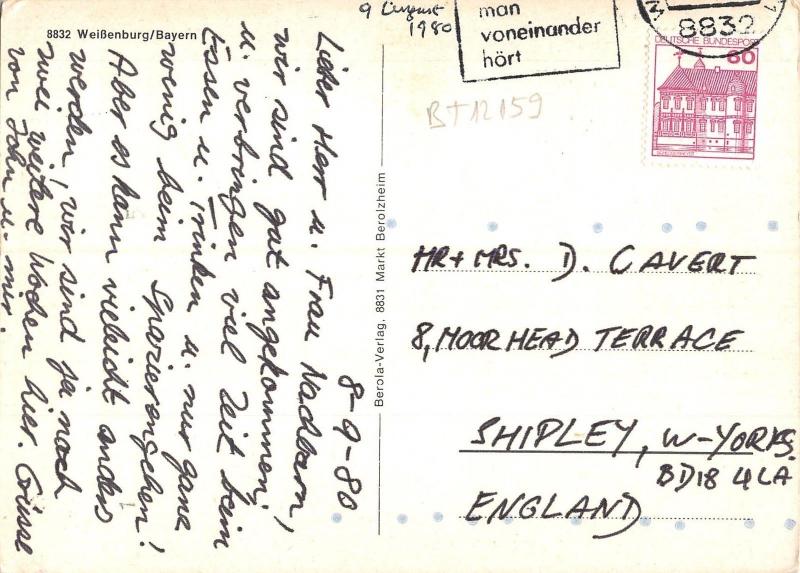 8832 Weißenburg/Bayern
9 August
1980
man
voneinander
hört
8832
DEUTSCHE BUNDESPOST
60
BT12159
8-9-80
Lieber Herr u. Frau Nachbarn,
wir sind gut angekommen,
u. verbringen viel Zeit beim
Essen u. Trinken u. nur ganz
wenig beim Spazierengehen!
Aber es kann vieleicht anders
werden, wir sind ja noch
zwei weitere Wochen hier. Grüsse
von John u. mir.
Berola-Verlag, 8831 Markt Berolzheim
MR + MRS. D. CAVERT
8, MOORHEAD TERRACE
SHIPLEY, W-YORKS.
BD18 4LA
ENGLAND